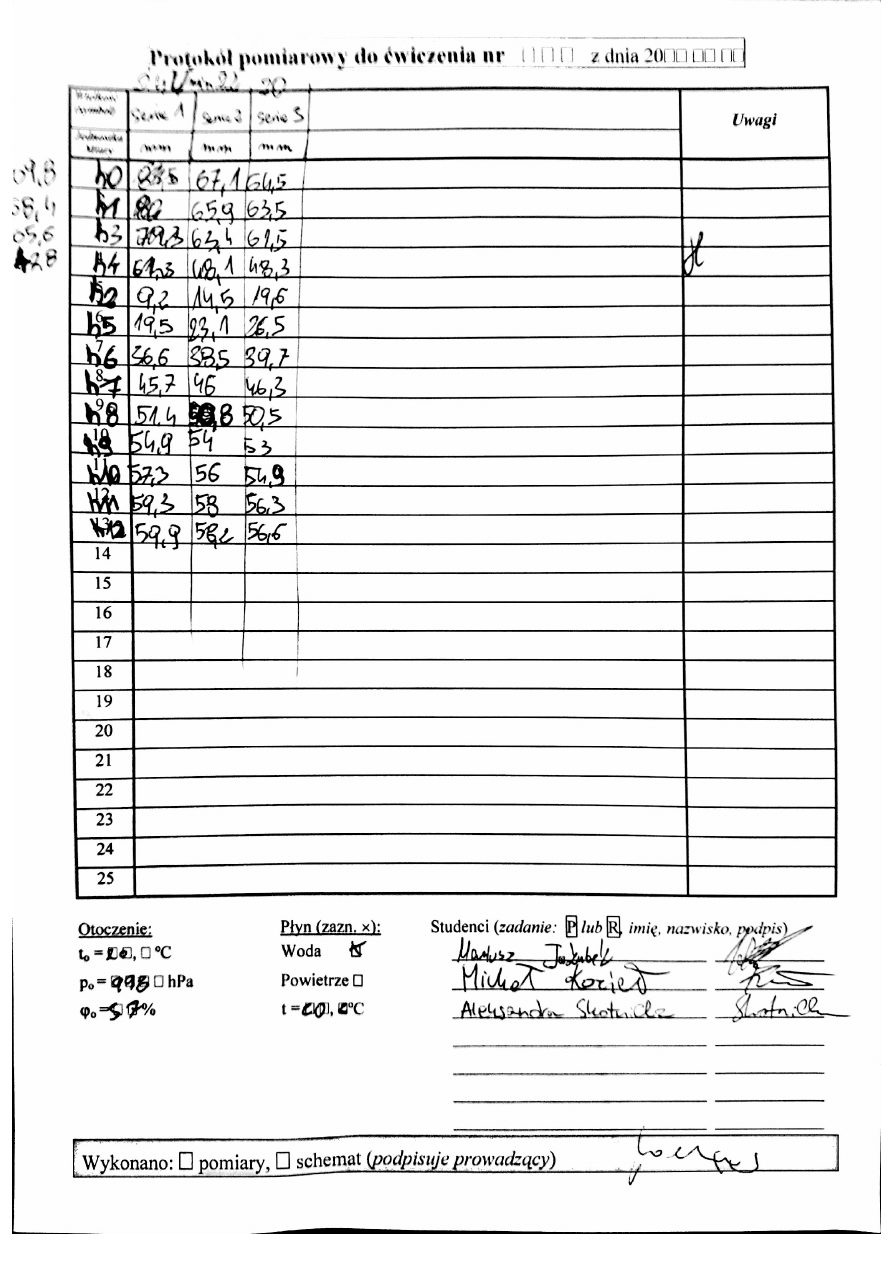 Protokół pomiarowy do ćwiczenia nr □□□ z dnia 20□□ □□ □□
22 20
Serie 1 Serie 2 Serie 3 Uwagi
mm mm mm
h0 67,1 64,5
68,4 h1 82 65,9 63,5
65,6 h3 79,3 63,4 61,5
42,8 h4 61,3 48,1 48,3
h2 9,2 14,5 19,6
h5 19,5 23,1 26,5
h6 36,6 38,5 39,7
h7 45,7 46 46,3
h8 51,4 50,8 50,5
h9 54,9 54 53
h10 57,3 56 54,9
h11 59,3 58 56,3
h12 59,9 58,2 56,6
14
15
16
17
18
19
20
21
22
23
24
25
Otoczenie: Płyn (zazn. ×): Studenci (zadanie: P lub R, imię, nazwisko, podpis)
t₀ = °C Woda Mariusz
p₀ = 998 □ hPa Powietrze □ Michał
φ₀ = 57 % t = °C Aleksandra Skotnicka
Wykonano: □ pomiary, □ schemat (podpisuje prowadzący)